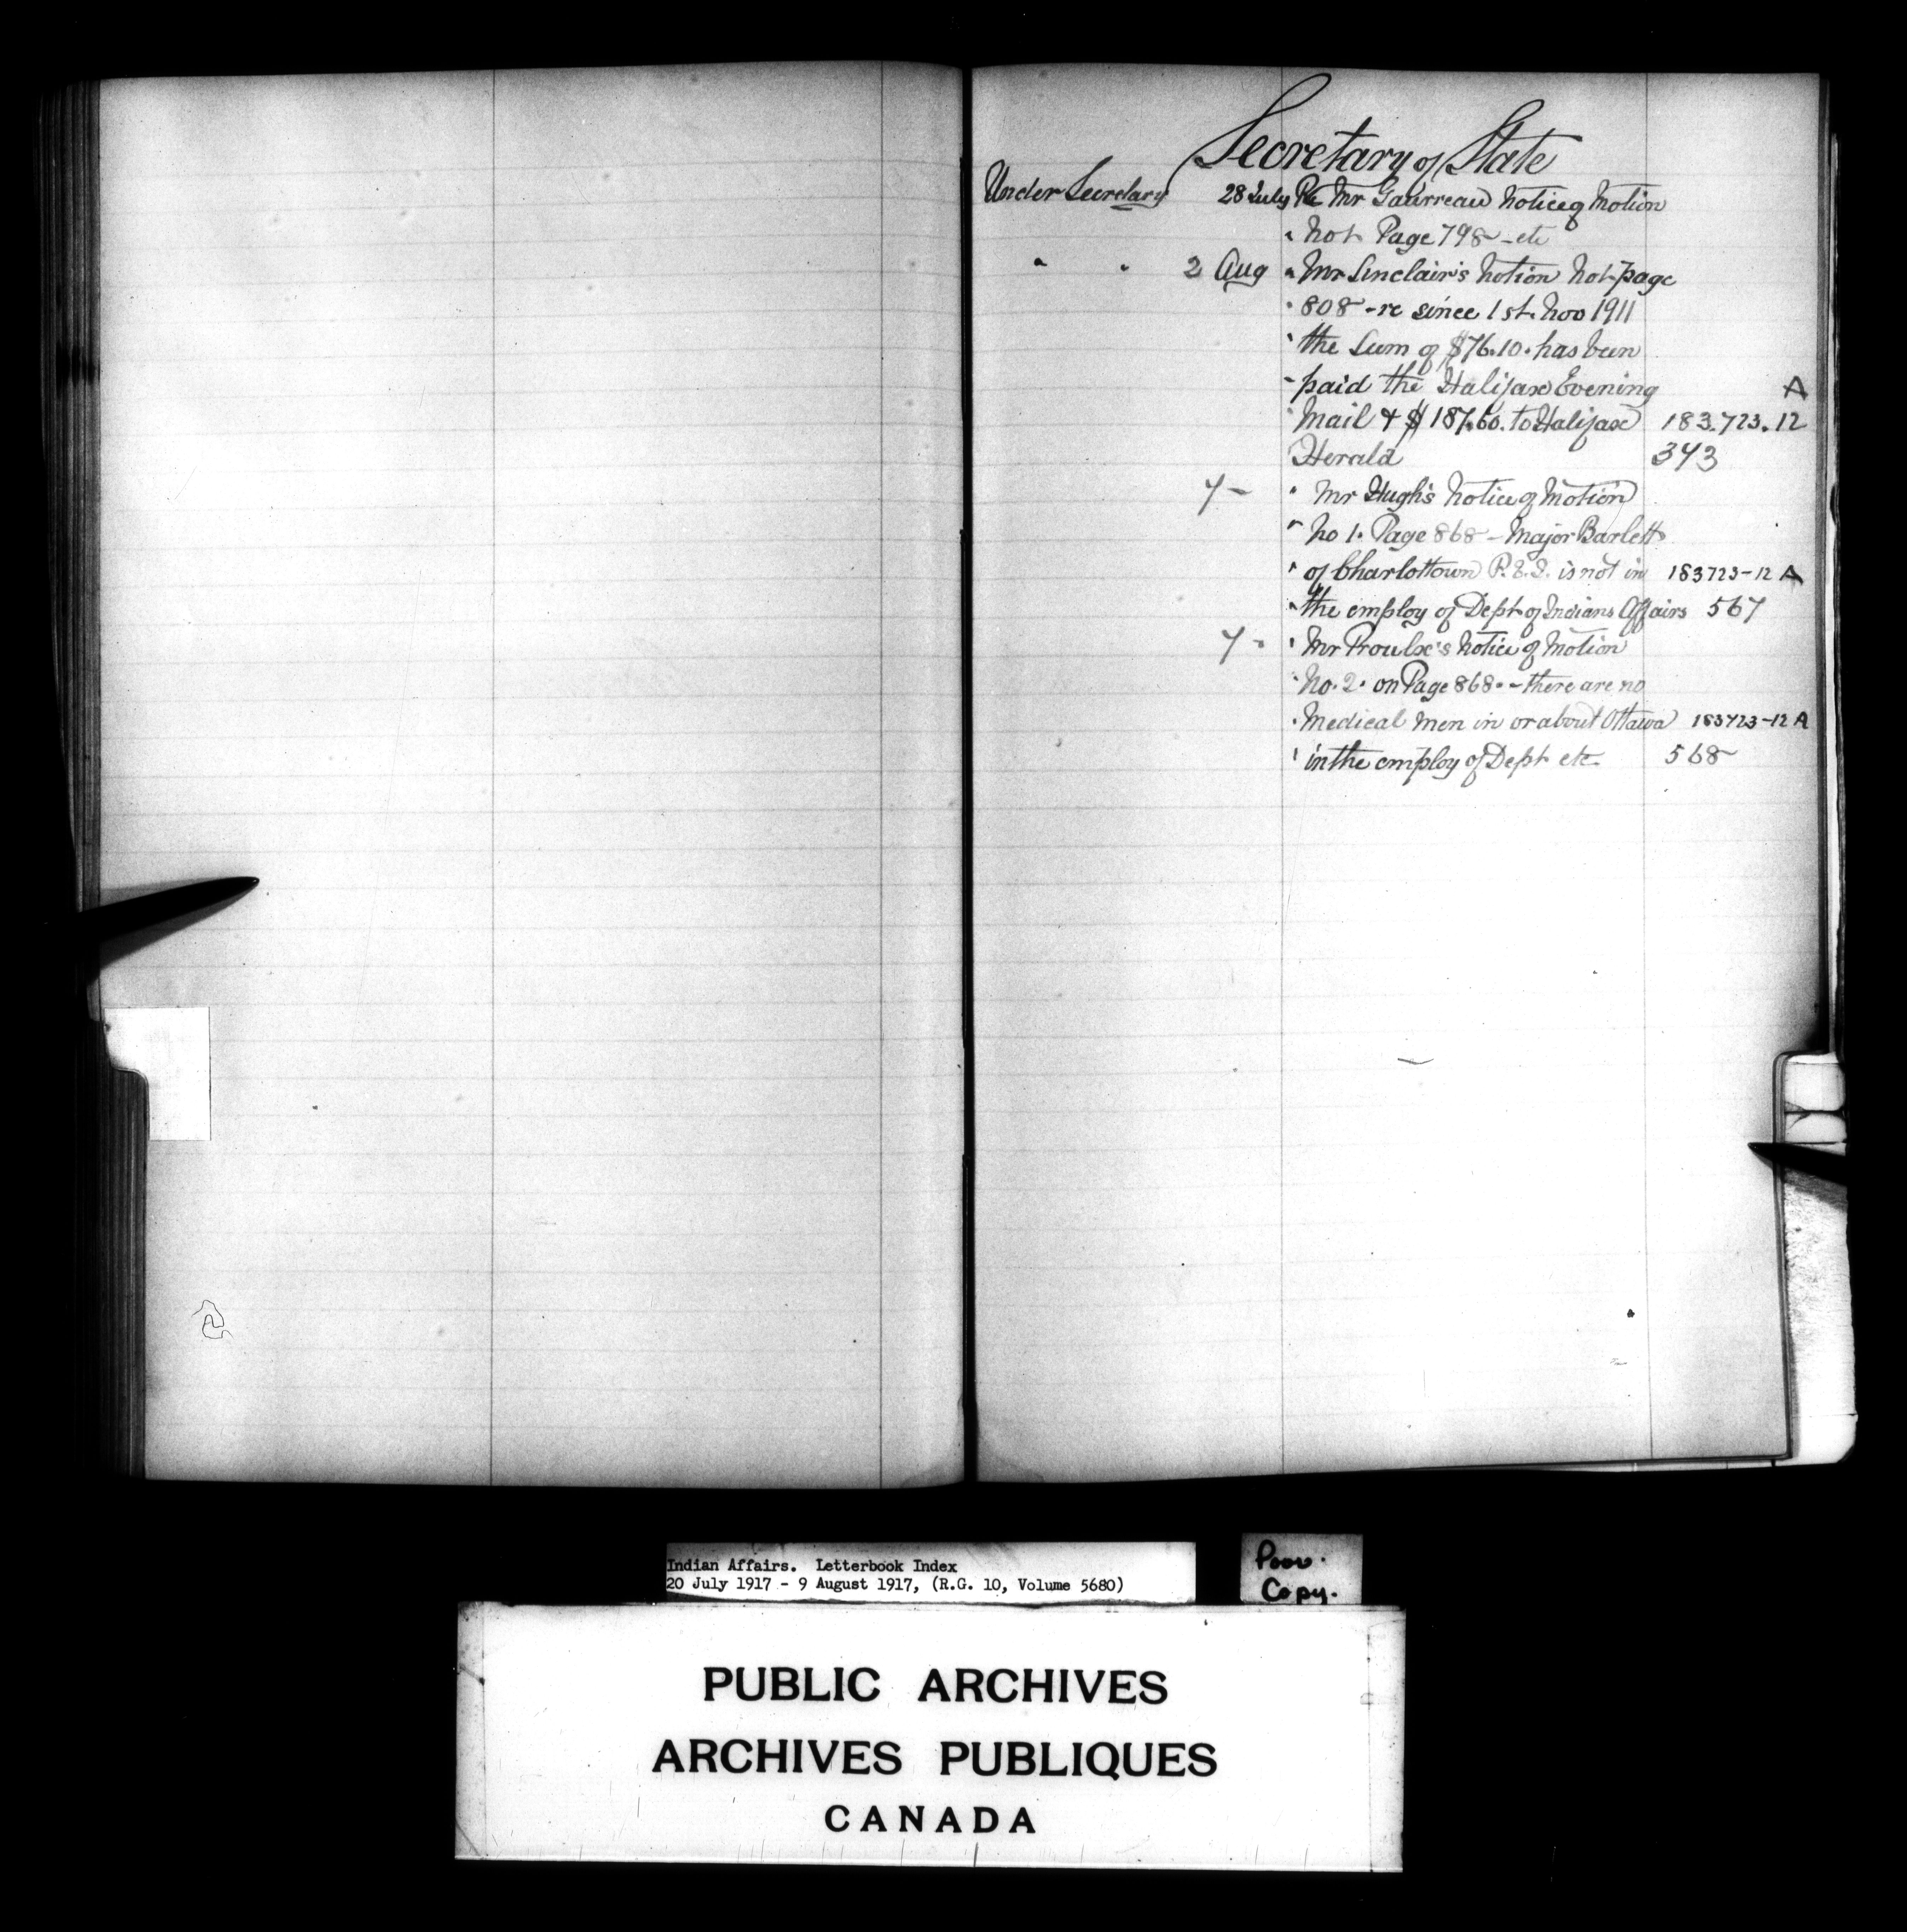 Secretary of State
Under Secretary 28 July Re Mr Gaurreau Notice of Motion
" No 1. Page 798 - etc
" " 2 Aug " Mr Sinclair's Notion No 1. page
" 808 - re since 1st. Nov 1911
" the Sum of $76.10. has been
" paid the Halifax Evening A
" Mail & $187.60. to Halifax 183.723.12
Herald 343
7 - " Mr Hugh's Notice of Motion
" No 1. Page 868 - Major Barlett
" of Charlottown P.E.I. is not in 183723-12 A
" the employ of Dept of Indians Affairs 567
7 - " Mr Proulx's Notice of Motion
" No. 2. on Page 868. - there are no
" Medical Men in or about Ottawa 183723-12 A
" in the employ of Dept etc 568
Indian Affairs. Letterbook Index
20 July 1917 - 9 August 1917, (R.G. 10, Volume 5680)
Poor.
Copy.
PUBLIC ARCHIVES
ARCHIVES PUBLIQUES
CANADA